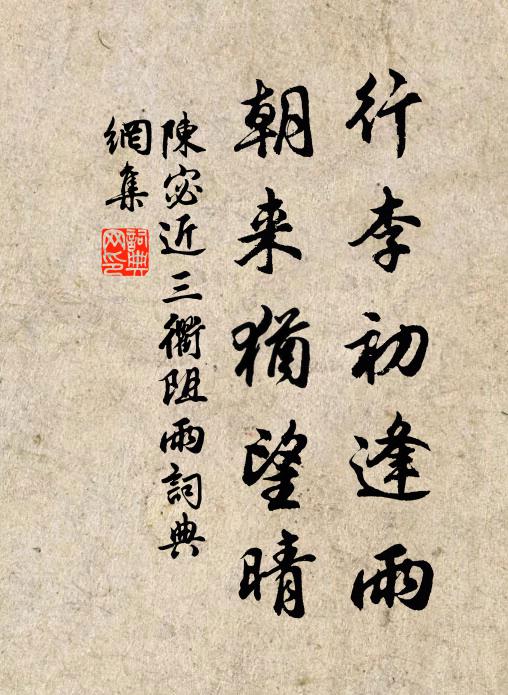 行李初逢雨
朝来猶望晴
陳宓近三衢阻雨詞典
網集
詞典
网印